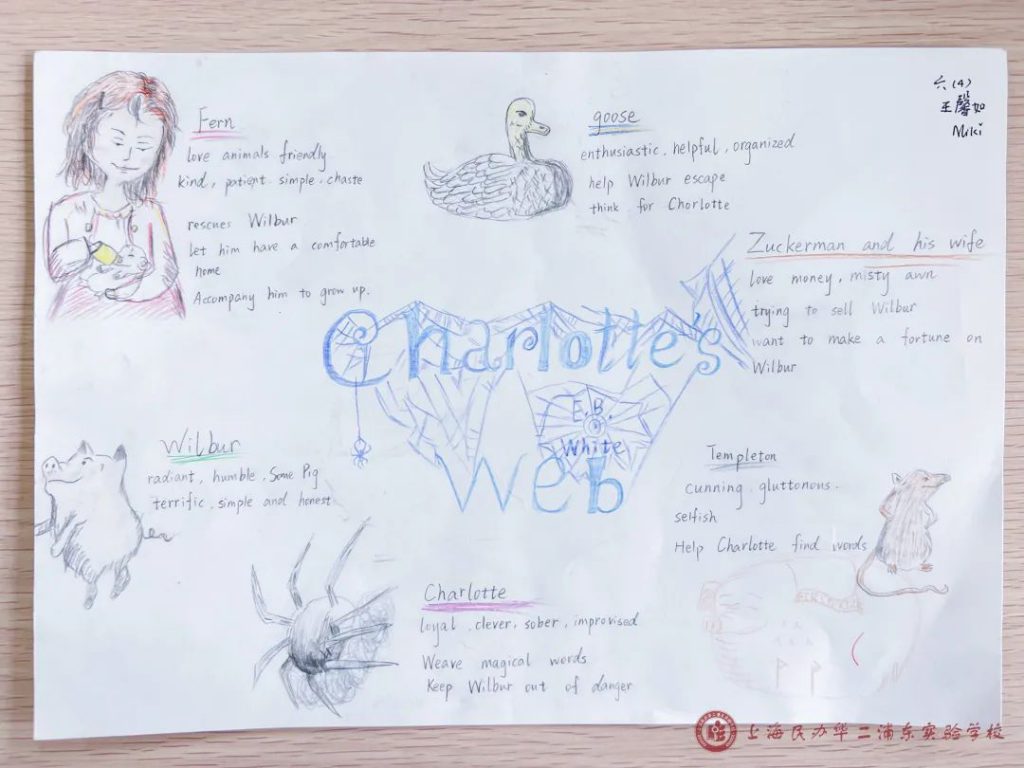 六(4)
王馨如
Miki
Fern
love animals friendly
kind, patient. simple. chaste
rescues Wilbur
let him have a comfortable
home
Accompany him to grow up.
goose
enthusiastic, helpful, organized
help Wilbur escape
think for Chorlotte
Zuckerman and his wife
love money, misty awn
trying to sell Wilbur
want to make a fortune on
Wilbur
Charlotte's
E.B.
White
Web
Wilbur
radiant, humble, Some Pig
terrific, simple and honest
Templeton
cunning, gluttonous.
selfish
Help Charlotte find words
Charlotte
loyal, clever, sober, improvised
Weave magical words
Keep Wilbur out of danger
上海民办华二浦东实验学校